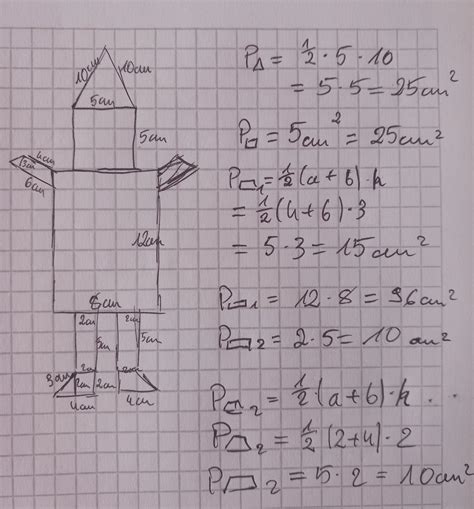 10cm 10cm
5cm
5cm
4cm
3cm
6cm
12cm
8cm
2cm 2cm
5cm 5cm
3cm 2cm
2cm 2cm
4cm 4cm
P△ = 1/2 · 5 · 10
= 5 · 5 = 25cm²
P□ = 5cm² = 25cm²
P⏢1 = 1/2 (a+b) · h
= 1/2 (4+6) · 3
= 5 · 3 = 15cm²
P▭1 = 12 · 8 = 96cm²
P▭2 = 2 · 5 = 10 cm²
P⏢2 = 1/2 (a+b) · h
P⏢2 = 1/2 (2+4) · 2
P⏢2 = 5 · 2 = 10cm²